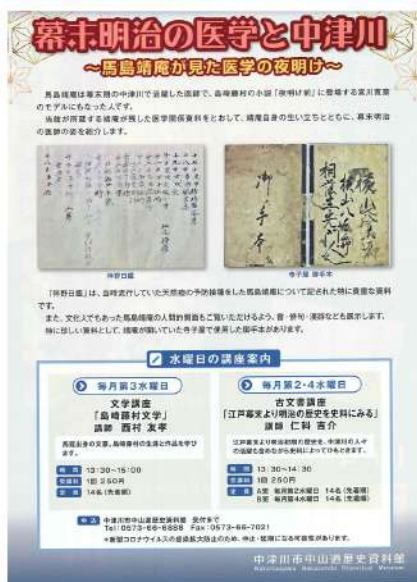 幕末明治の医学と中津川
～馬島靖庵が見た医学の夜明け～
馬島靖庵は幕末期の中津川で活躍した医師で、島崎藤村の小説「夜明け前」に登場する宮川寛斎
のモデルにもなった人です。
当館が所蔵する靖庵が残した医学関係資料をとおして、靖庵自身の生い立ちとともに、幕末明治
の医師の姿を紹介します。
御手本
寺子屋 御手本
は、当時流行していた天然痘の予防接種をした馬島靖庵について記された特に貴重な資料
です。
また、文化人でもあった馬島靖庵の人間的側面もご覧いただけるよう、書・俳句・漢詩なども展示します。
特に珍しい資料として、靖庵が開いていた寺子屋で使用した御手本があります。
水曜日の講座案内
毎月第3水曜日
文学講座
「島崎藤村文学」
講師 西村 友孝
馬籠出身の文豪、島崎藤村の生涯と作品を学び
ます。
時間 13:30～15:00
受講料 1回 250円
定員 14名(先着順)
毎月第2・4水曜日
古文書講座
「江戸幕末より明治の歴史を史料にみる」
講師 仁科 吉介
江戸幕末より明治初期の歴史を、中津川の人々
の活躍も含めながら史料によってひもときます。
時間 13:30～14:30
受講料 1回 250円
定員 A班 毎月第2水曜日 14名(先着順)
B班 毎月第4水曜日 14名(先着順)
申込 中津川市中山道歴史資料館 受付まで
Tel:0573-66-6888 Fax:0573-66-7021
*新型コロナウイルスの感染拡大防止のため、中止・延期になる可能性があります。
中津川市中山道歴史資料館
Nakatsugawa Nakasendo Historical Museum